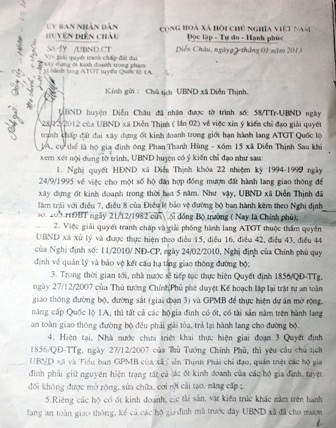 ỦY BAN NHÂN DÂN
HUYỆN DIỄN CHÂU
CỘNG HOÀ XÃ HỘI CHỦ NGHĨA VIỆT NAM
Độc lập - Tự do - Hạnh phúc
Số /UBND.CT
Diễn Châu, ngày tháng 01 năm 2013
V/v giải quyết tranh chấp đất đai
xây dựng ốt kinh doanh trong phạm
vi hành lang ATGT tuyến Quốc lộ 1A.
Kính gửi: Chủ tịch UBND xã Diễn Thịnh.
UBND huyện Diễn Châu đã nhận được tờ trình số: 58/TTr-UBND ngày
28/12/2012 của UBND xã Diễn Thịnh ( lần 02) về việc xin ý kiến chỉ đạo giải quyết
tranh chấp đất đai xây dựng ốt kinh doanh trong giới hạn hành lang ATGT Quốc lộ
1A, cụ thể là hộ gia đình ông Phan Thanh Hùng - xóm 15 xã Diễn Thịnh Sau khi
xem xét nội dung tờ trình, UBND huyện có ý kiến chỉ đạo như sau:
1. Nghị quyết HĐND xã Diễn Thịnh khóa 22 nhiệm kỳ 1994-1999 ngày
24/9/1995 về việc cho một số hộ dân hợp đồng mượn đất hành lang giao thông để
xây dựng ốt kinh doanh trong thời hạn 5 năm. Như vậy, UBND xã Diễn Thịnh đã
làm trái với điều 7, điều 8 của Điều lệ bảo vệ đường bộ ban hành kèm theo Nghị định
số: 203/HĐBT ngày 21/12/1982 của đồng Bộ trưởng ( Nay là Chính phủ);
2. Việc giải quyết tranh chấp và giải phóng hành lang ATGT thuộc thẩm quyền
UBND xã xử lý và được thực hiện theo điều 15, điều 16, điều 42, điều 43, điều 44
của Nghị định số: 11/2010/NĐ-CP, ngày 24/02/2010, Nghị định của Chính phủ quy
định về quản lý và bảo vệ kết cấu hạ tầng giao thông đường bộ;
3. Trong thời gian tới, nhà nước sẽ tiếp tục thực hiện Quyết định 1856/QĐ-TTg,
ngày 27/12/2007 của Thủ tướng Chính Phủ phê duyệt Kế hoạch lập lại trật tự an toàn
giao thông đường bộ, đường sắt (giai đoạn 3) và GPMB để thực hiện dự án mở rộng,
nâng cấp Quốc lộ 1A, thì tất cả các hộ gia đình có ốt, có tài sản nằm trên hành lang
an toàn giao thông đường bộ đều phải giải tỏa, trả lại hành lang cho đường bộ.
4. Hiện tại, Nhà nước chưa triển khai thực hiện giai đoạn 3 Quyết định
1856/QĐ-TTg, ngày 27/12/2007 của Thủ Tướng Chính Phủ, thì yêu cầu chủ tịch
UBND xã và Tiểu ban GPMB của xã Diễn Thịnh Phải chỉ đạo, quán triệt các hộ gia
đình phải giữ nguyên hiện trạng tất cả các ốt kinh doanh của các hộ gia đình, tuyệt
đối không được mở rộng, sửa chữa, cơi nới cải tạo, nâng cấp
5. Riêng các hộ có ốt kinh doanh, các tài sản, vật kiến trúc khác nằm trên hành
lang an toàn giao thông, kể cả các hộ gia đình mà trước đây UBND xã đã cho mượn